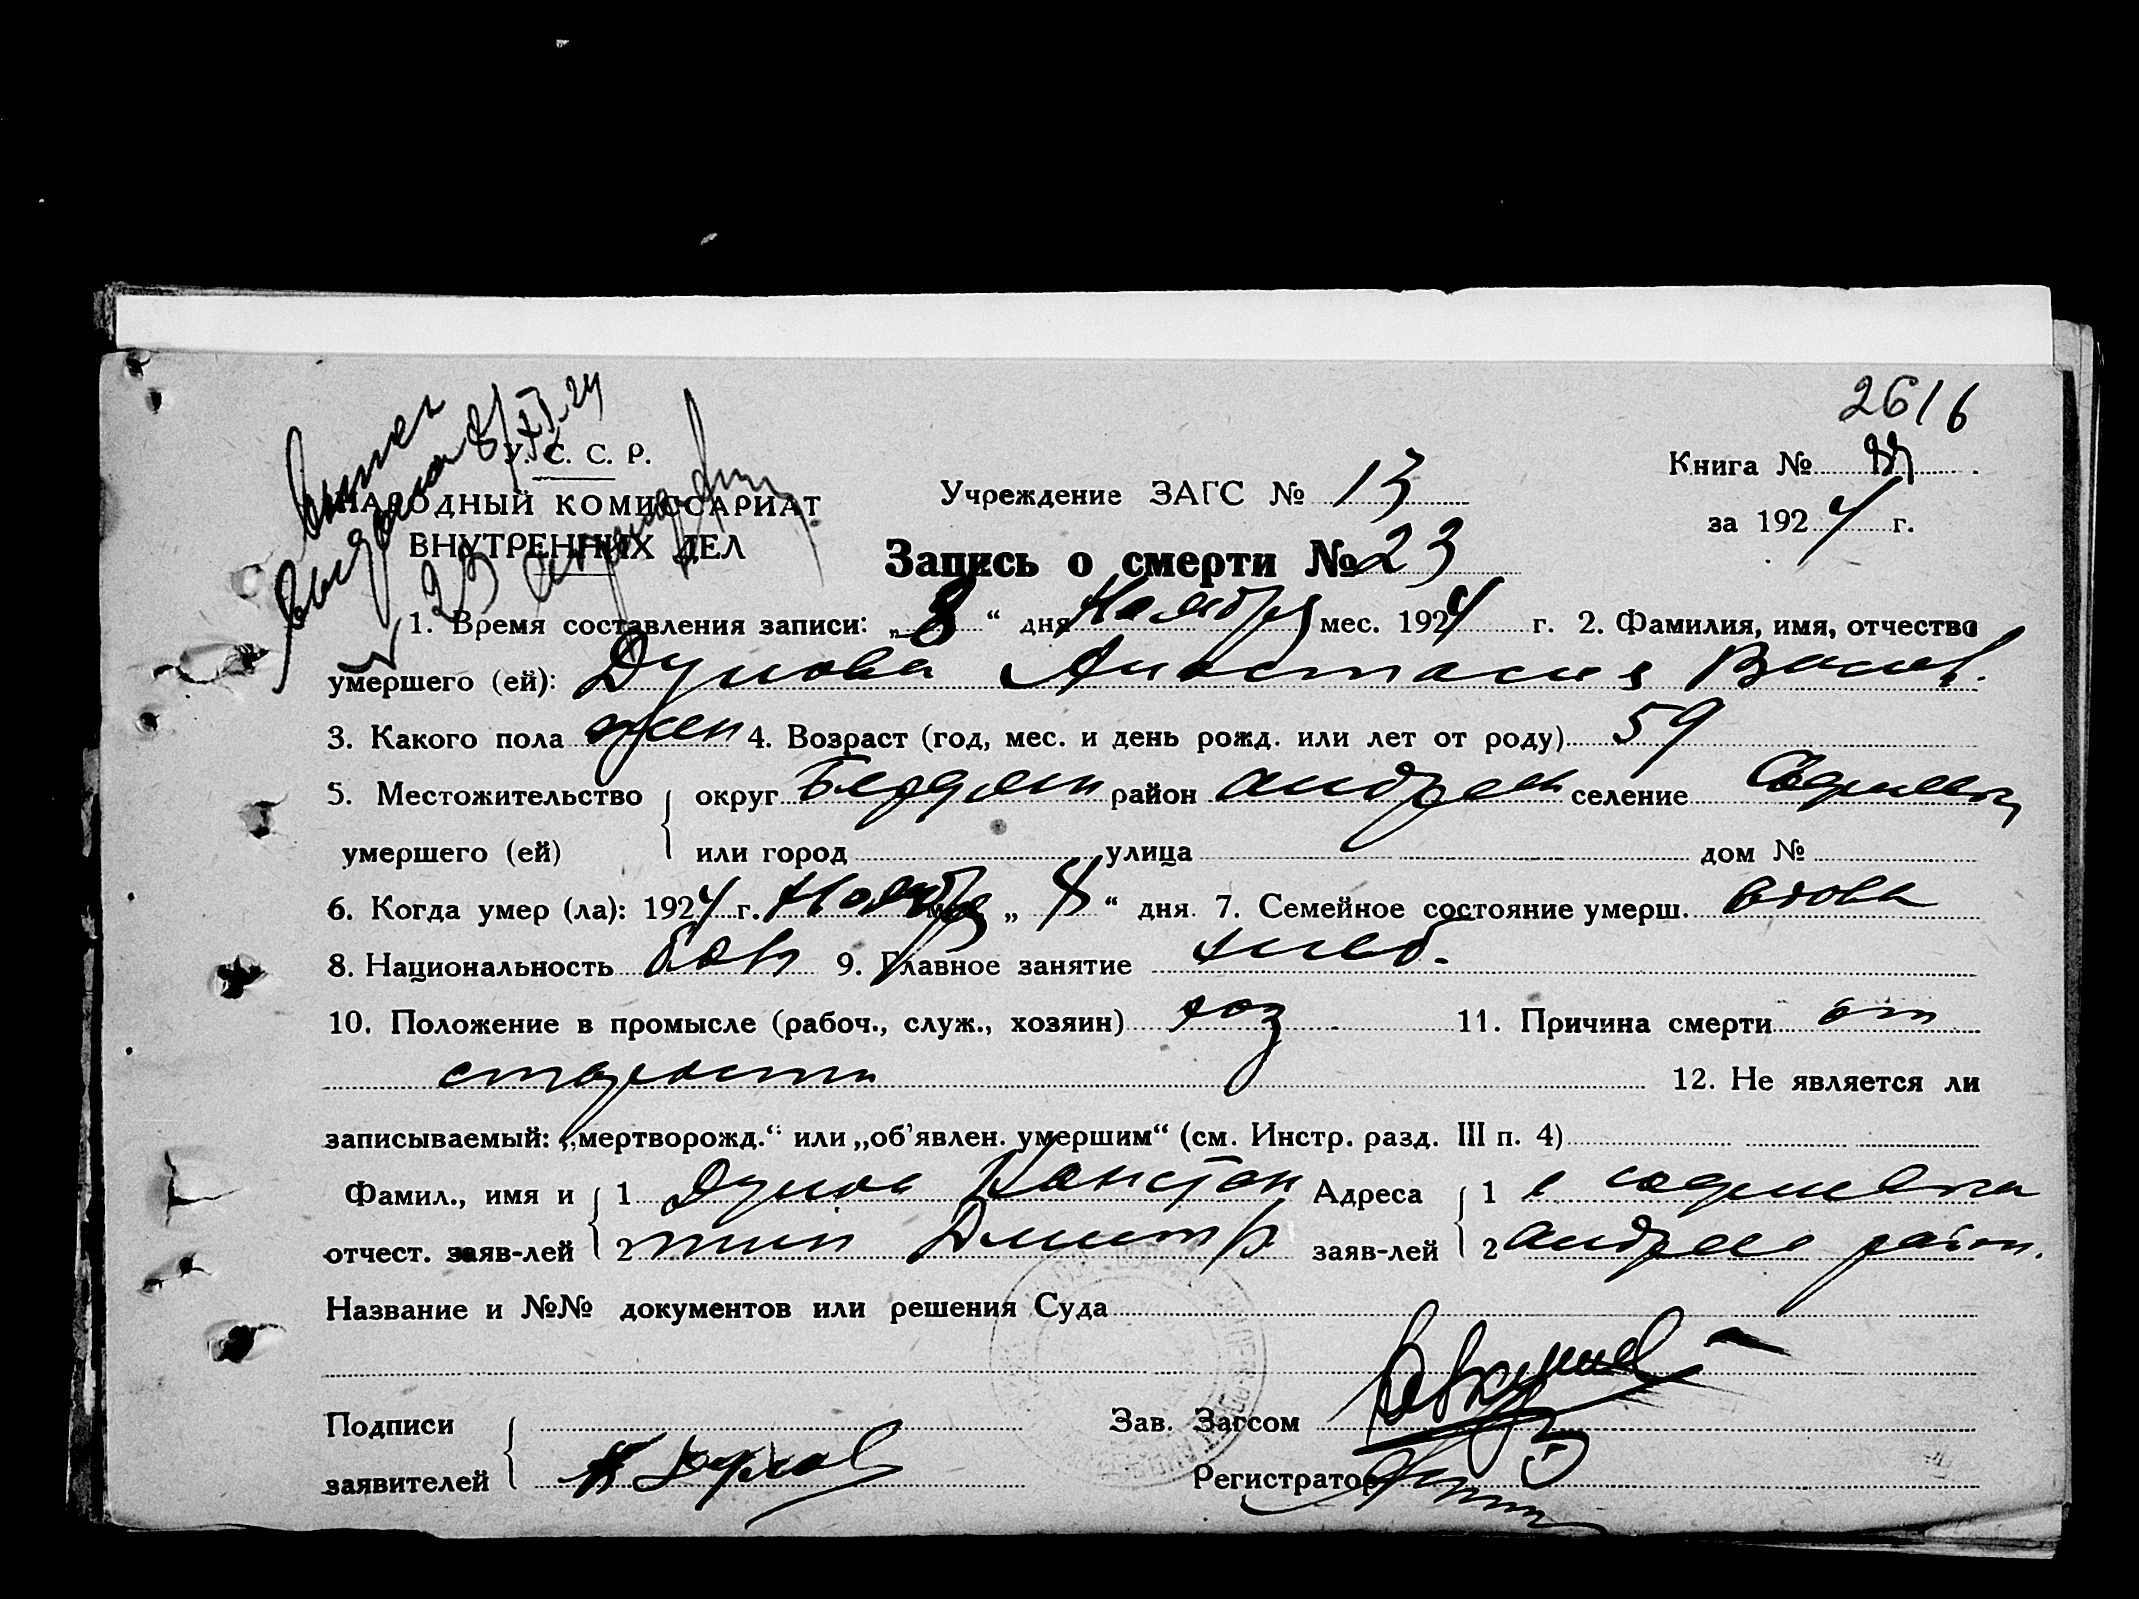 2616
Выпись
выдана 8/XI-24
У. С. С. Р.
НАРОДНЫЙ КОМИССАРИАТ
ВНУТРЕННИХ ДЕЛ
Учреждение ЗАГС № 13
Книга №
за 1924 г.
Запись о смерти № 23
1. Время составления записи: „8“ дня Ноября мес. 1924 г. 2. Фамилия, имя, отчество
умершего (ей): Дунова Анастасия Васил.
3. Какого пола жен 4. Возраст (год, мес. и день рожд. или лет от роду) 59
5. Местожительство округ Бердян район Андреев селение
умершего (ей) или город улица дом №
6. Когда умер (ла): 1924 г. Ноябр мес. „ “ дня. 7. Семейное состояние умерш. вдова
8. Национальность болг 9. Главное занятие хлеб.
10. Положение в промысле (рабоч., служ., хозяин) хоз 11. Причина смерти от
старости 12. Не является ли
записываемый: „мертворожд.“ или „об'явлен. умершим“ (см. Инстр. разд. III п. 4)
Фамил., имя и 1 Дунов Констан Адреса 1 с
отчест. заяв-лей 2 тин Дмитр заяв-лей 2 Андреев район.
Название и №№ документов или решения Суда
Подписи
Зав. Загсом
заявителей К Дунов
Регистратор